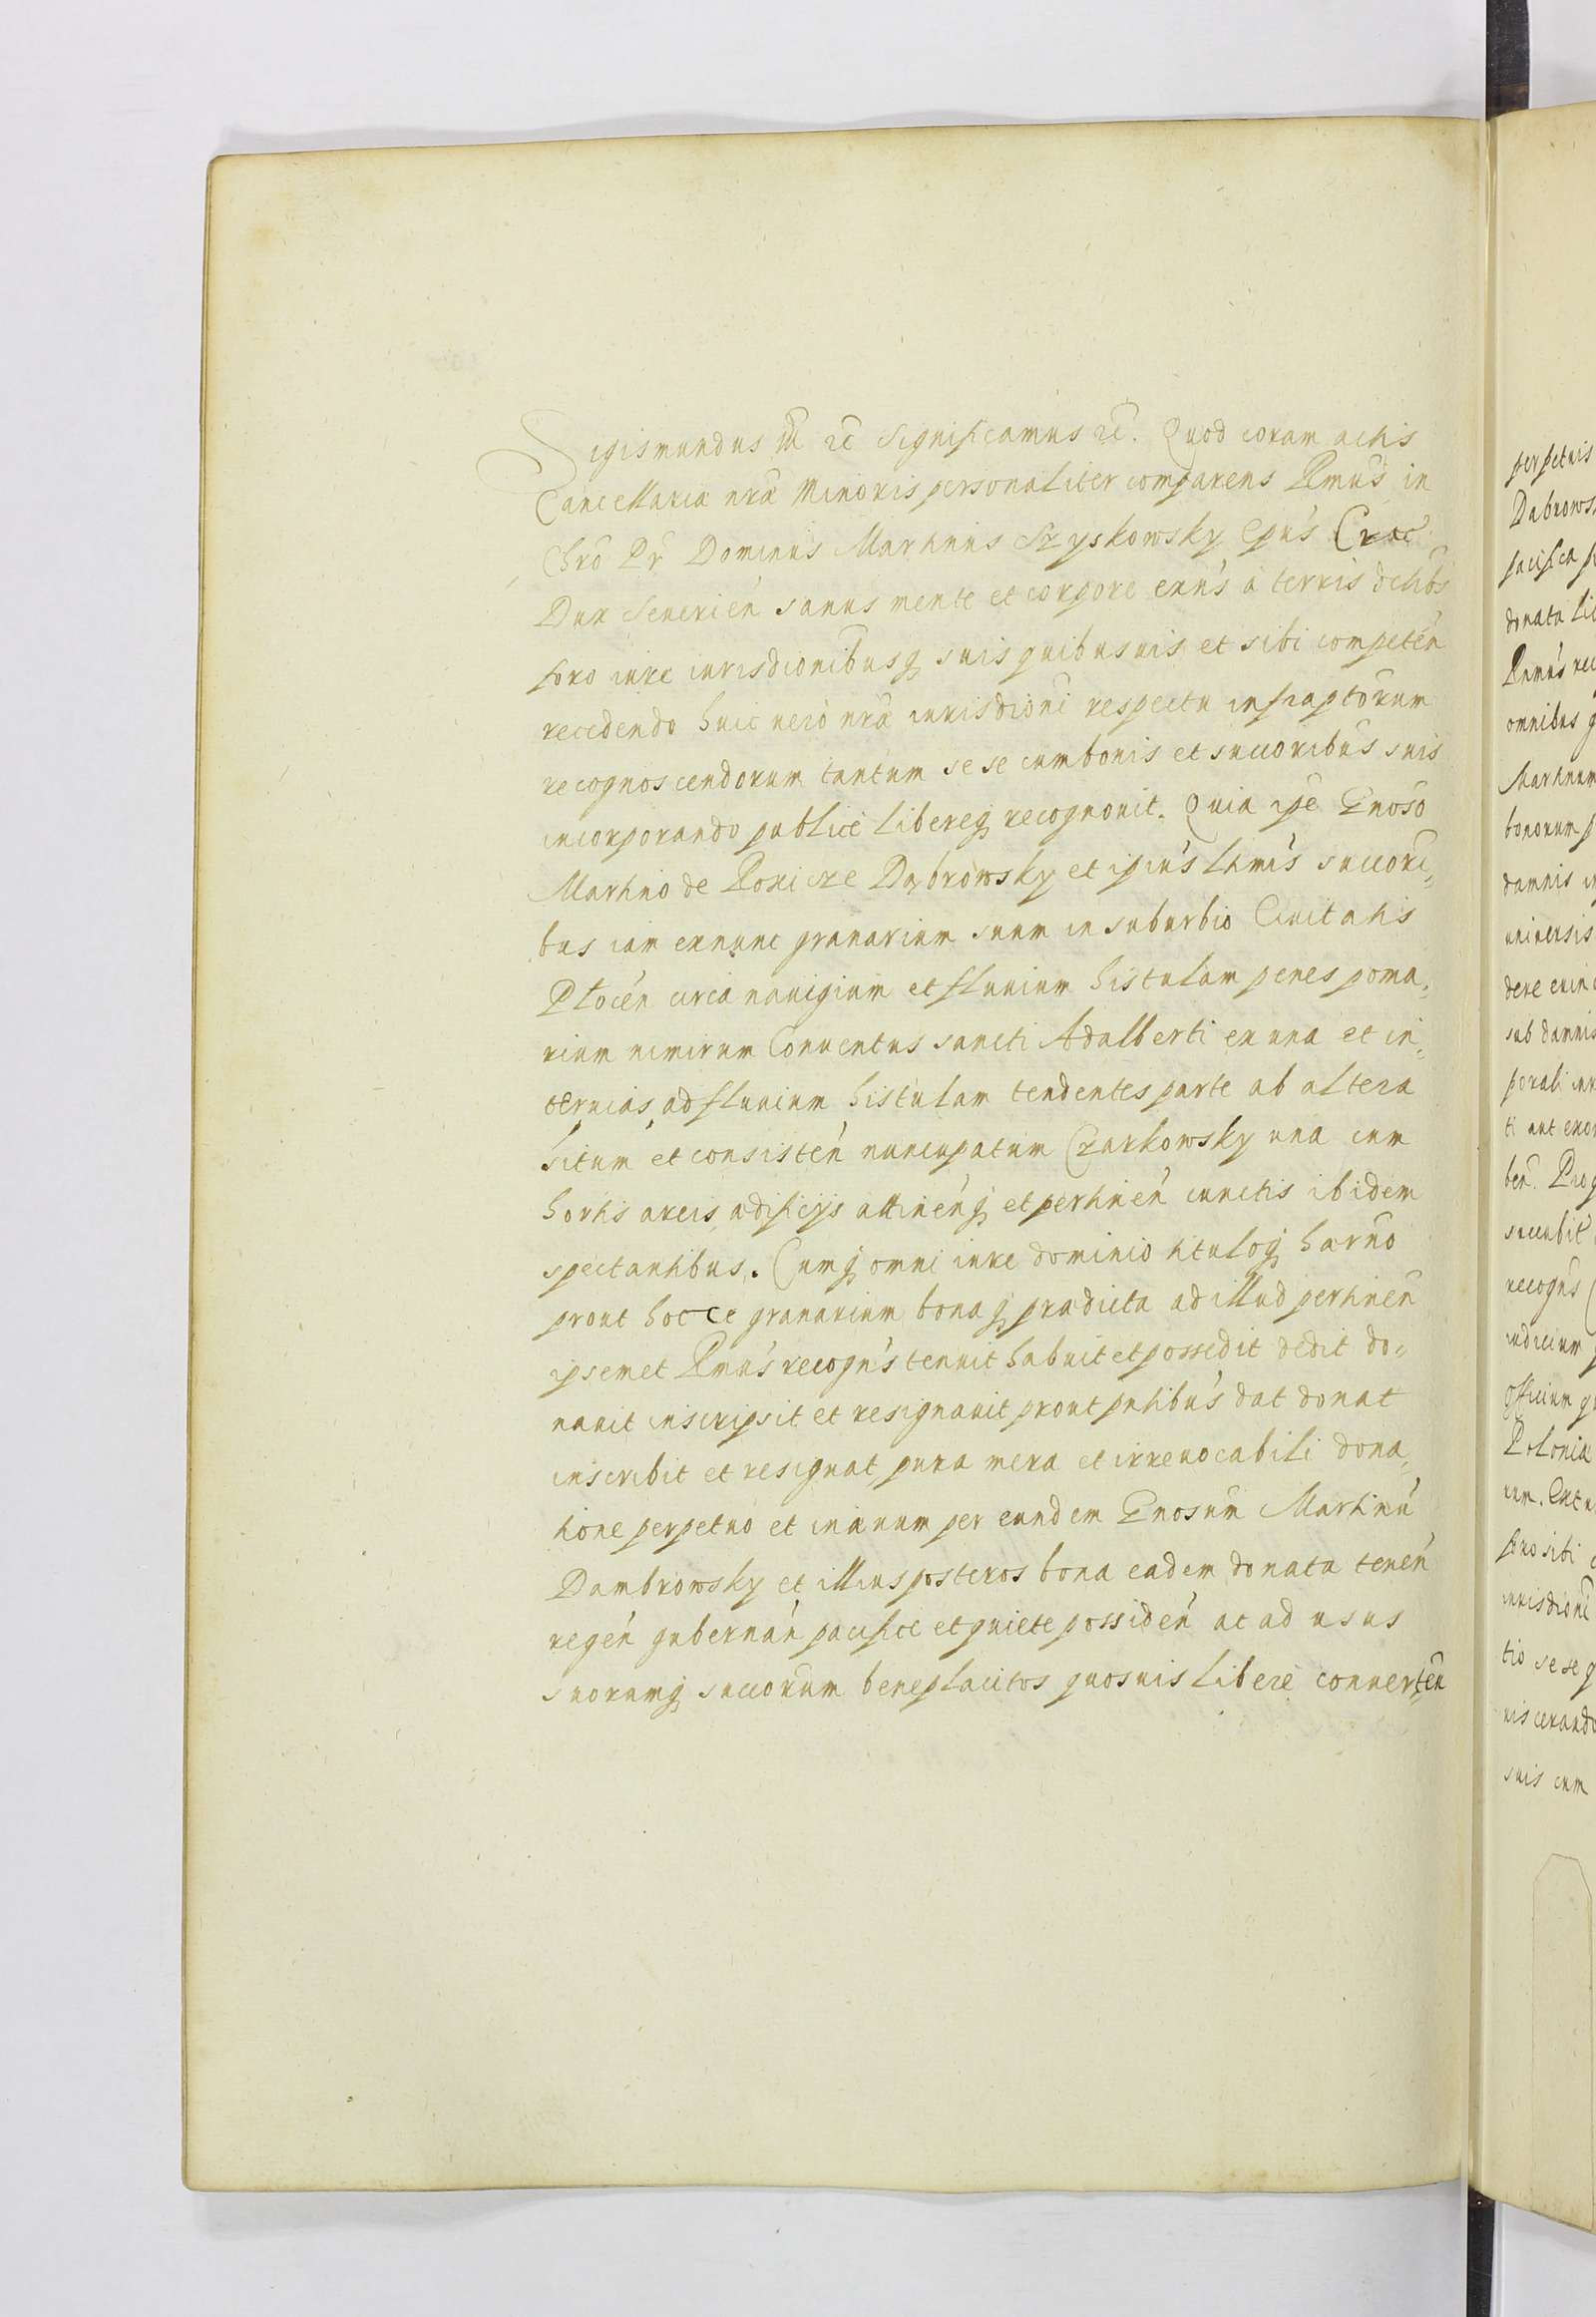 Sigismundus III etc Significamus etc. Quod coram actis
Cancellariæ nræ Minoris personaliter comparens Rmus in
Chro Pr Dominus Martinus Szyskowsky Epus Crac
Dux Severien sanus mente et corpore exns a terris dchbs
foro iure iurisdionibusq suis quibusuis et sibi competen
recedendo huic uero nræ iurisdioni respectu infraptorum
recognoscendorum tantum sese cum bonis et succoribus suis
incorporando publice libereq recognouit. Quia ipe Gnoso
Martino de Dąbrowsky et ipius ltmis succori„
bus iam exnunc granarium suum in suburbio Ciuitatis
Plocen circa nauigium et fluuium histulam penes poma„
rium nimirum Conuentus sancti Adalberti ex una et in„
teruias, ad fluuium histulam tendentes parte ab altera
situm et consisten nuncupatum Czarkowsky una cum
hortis areis, ædificijs attinenq et pertinen cunctis ibidem
spectantibus. Cumq omni iure dominio tituloq harno
prout hocce granarium bonaq prædicta ad illud pertinen
ipsemet Rmus recogns tenuit habuit et possedit dedit do„
nauit inscripsit et resignauit prout pntibus dat donat
inscribit et resignat pura mera et irreuocabili dona„
tione perpetuo et in æuum per eundem Gnosum Martinu
Dambrowsky et illius posteros bona eadem donata tenen
regen gubernan pacifice et quiete possiden ac ad usus
suorumq succorum beneplacitos quosuis libere conuerten
perpetuis
Dabrows
pacifica p
donata li
Rmus rec
omnibus q
Martinum
bonorum p
damnis in
uniuersis
dere euin
sub damnis
porali
ti aut
ten. Pro q
succubit
recogns
iudicium
Officium q
Polonia
um. Ext
foro sibi c
iurisdioni
tio sese q
uiscerando
suis cum